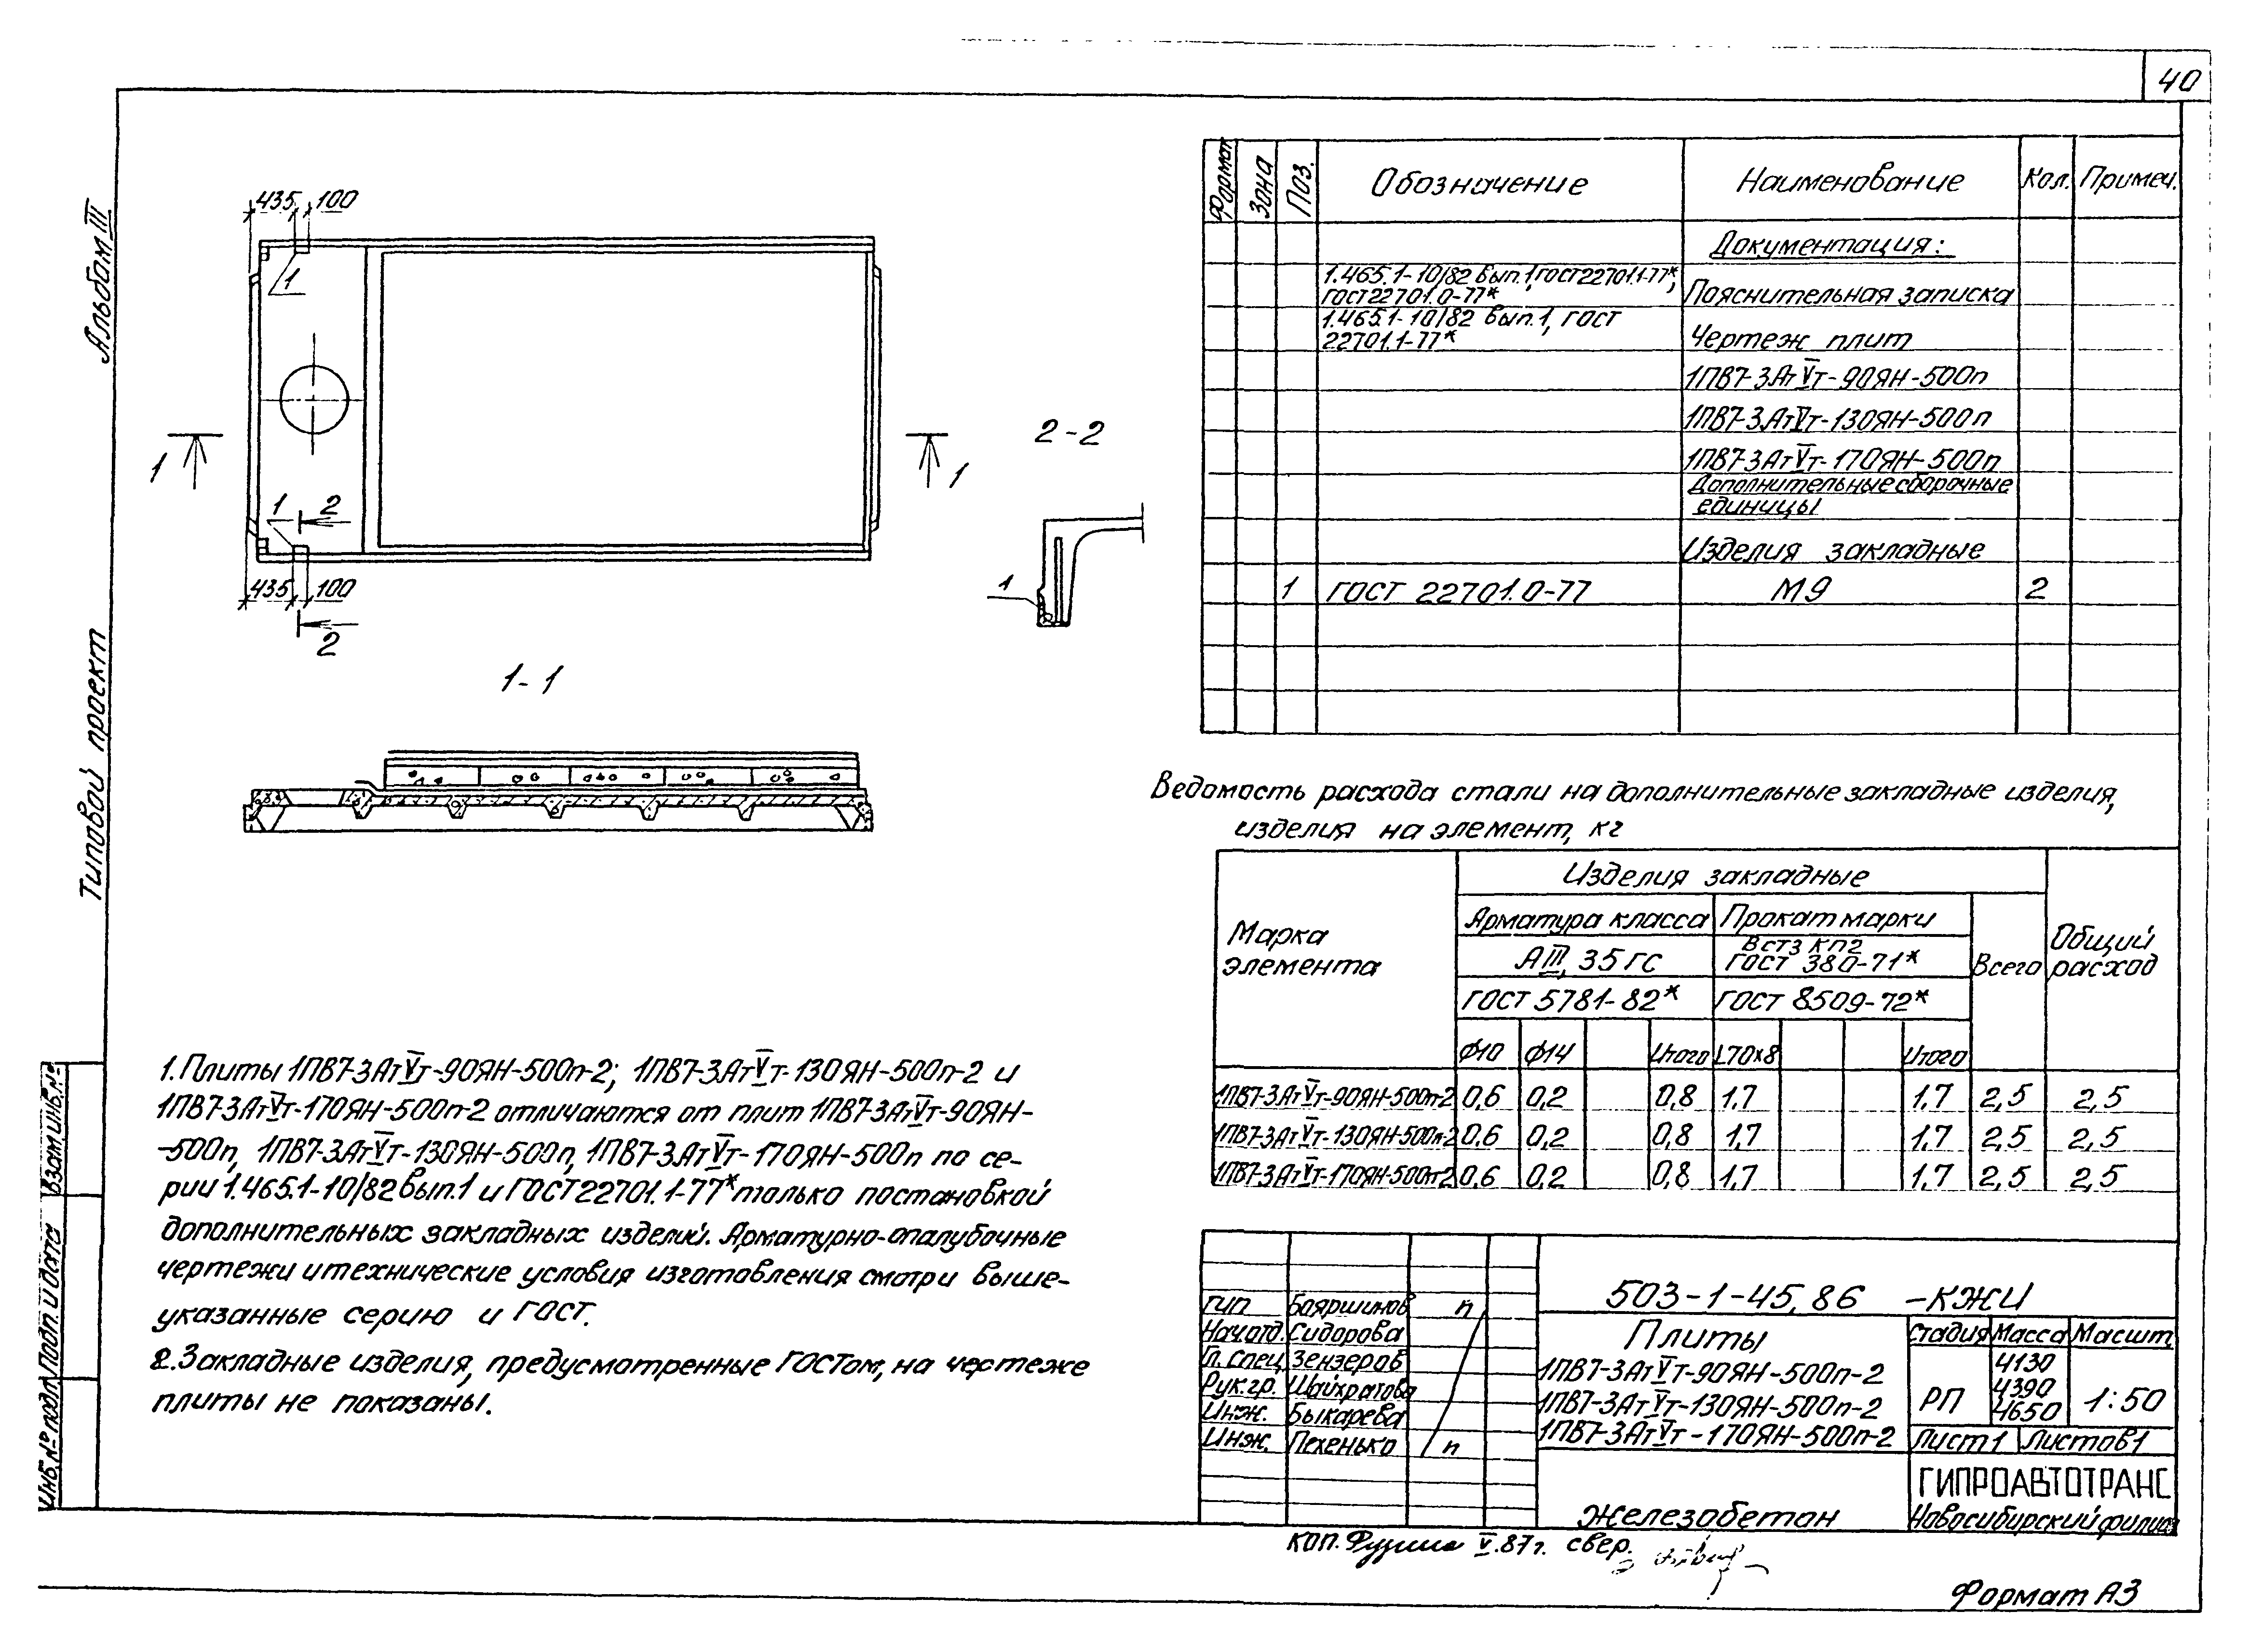 40
Альбом III
Типовой проект
Взам.инв.№
Подп. и дата
Инв.№ подл.
435 100
1
1 1
1 2
435 100
2
2-2
1
1-1
Формат Зона Поз. Обозначение Наименование Кол. Примеч.
Документация:
1.465.1-10/82 вып.1, ГОСТ22701.1-77*,
ГОСТ22701.0-77* Пояснительная записка
1.465.1-10/82 вып.1, ГОСТ
22701.1-77* Чертеж плит
1ПВ7-3АтVт-90ЯН-500п
1ПВ7-3АтVт-130ЯН-500п
1ПВ7-3АтVт-170ЯН-500п
Дополнительные сборочные
единицы
Изделия закладные
1 ГОСТ 22701.0-77 М9 2
Ведомость расхода стали на дополнительные закладные изделия,
изделия на элемент, кг
Марка элемента
Изделия закладные
Общий расход
Арматура класса Прокат марки Всего
АIII, 35 ГС ВСт3 кп2 ГОСТ 380-71*
ГОСТ 5781-82* ГОСТ 8509-72*
ϕ10 ϕ14 Итого L70х8 Итого
1ПВ7-3АтVт-90ЯН-500п-2 0,6 0,2 0,8 1,7 1,7 2,5 2,5
1ПВ7-3АтVт-130ЯН-500п-2 0,6 0,2 0,8 1,7 1,7 2,5 2,5
1ПВ7-3АтVт-170ЯН-500п-2 0,6 0,2 0,8 1,7 1,7 2,5 2,5
1. Плиты 1ПВ7-3АтVт-90ЯН-500п-2; 1ПВ7-3АтVт-130ЯН-500п-2 и
1ПВ7-3АтVт-170ЯН-500п-2 отличаются от плит 1ПВ7-3АтVт-90ЯН-
-500п, 1ПВ7-3АтVт-130ЯН-500п, 1ПВ7-3АтVт-170ЯН-500п по се-
рии 1.465.1-10/82 вып.1 и ГОСТ22701.1-77* только постановкой
дополнительных закладных изделий. Арматурно-опалубочные
чертежи и технические условия изготовления смотри выше-
указанные серию и ГОСТ.
2. Закладные изделия, предусмотренные ГОСТом, на чертеже
плиты не показаны.
503-1-45.86 -КЖИ
ГИП Бояршинов п
Нач.отд. Сидорова
Гл. спец. Зензеров
Рук.гр. Шайхратова
Инж. Быкарева
Инж. Пехенько п
Плиты
1ПВ7-3АтVт-90ЯН-500п-2
1ПВ7-3АтVт-130ЯН-500п-2
1ПВ7-3АтVт-170ЯН-500п-2
Стадия Масса Масшт.
4130
РП 4390 1:50
4650
Лист 1 Листов 1
Железобетон
ГИПРОАВТОТРАНС
Новосибирский филиал
коп. V.87г. свер.
Формат А3